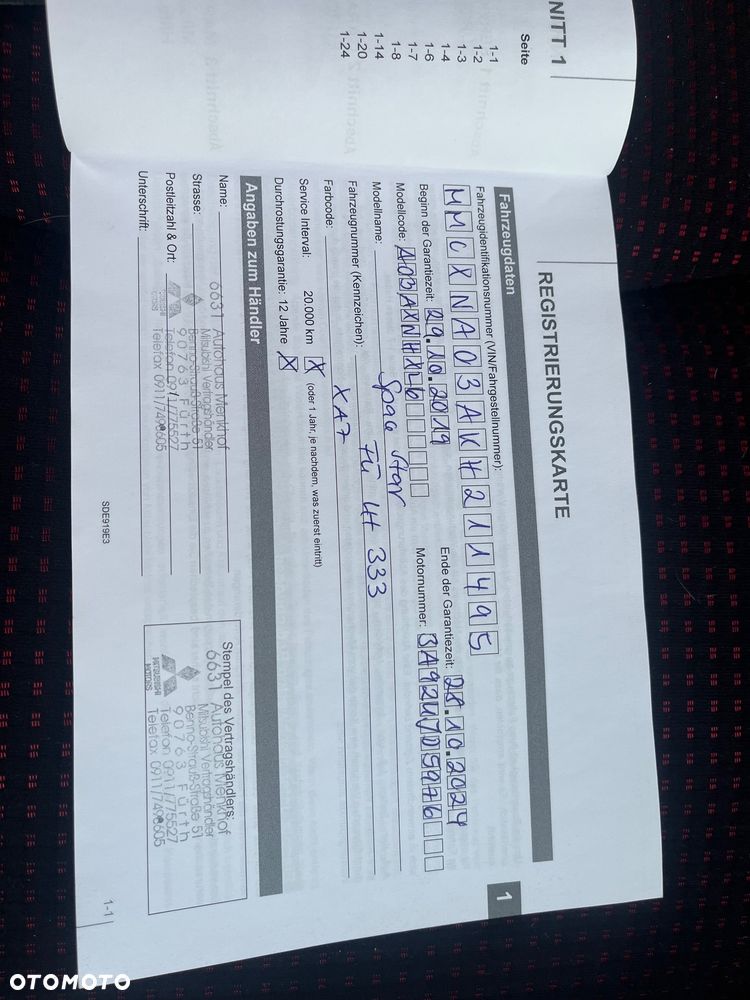 NITT 1
Seite
1-1
1-2
1-3
1-4
1-6
1-7
1-8
1-14
1-20
1-24
REGISTRIERUNGSKARTE
1
Fahrzeugdaten
Fahrzeugidentifikationsnummer (VIN/Fahrgestellnummer):
MMCXNA03AKH211495
Beginn der Garantiezeit: 29.10.2019 Ende der Garantiezeit: 28.10.2024
Modellcode: A03AXNHXL6 Motornummer: 3A92UJ05976
Modellname: Space Star
Fahrzeugnummer (Kennzeichen): FÜ LH 333
Farbcode: XA7
Service Interval: 20.000 km X (oder 1 Jahr, je nachdem, was zuerst eintritt)
Durchrostungsgarantie: 12 Jahre X
Angaben zum Händler
Name: 6631 Autohaus Menkhof
Mitsubishi Vertragshändler
Strasse: Benno-Strauß-Straße 51
90763 Fürth
Postleitzahl & Ort: Telefon 0911/775527
Telefax 0911/7490605
Unterschrift:
Stempel des Vertragshändlers:
6631 Autohaus Menkhof
Mitsubishi Vertragshändler
Benno-Strauß-Straße 51
90763 Fürth
Telefon 0911/775527
Telefax 0911/7490605
MITSUBISHI
MOTORS
SDE919E3
1-1
OTOMOTO